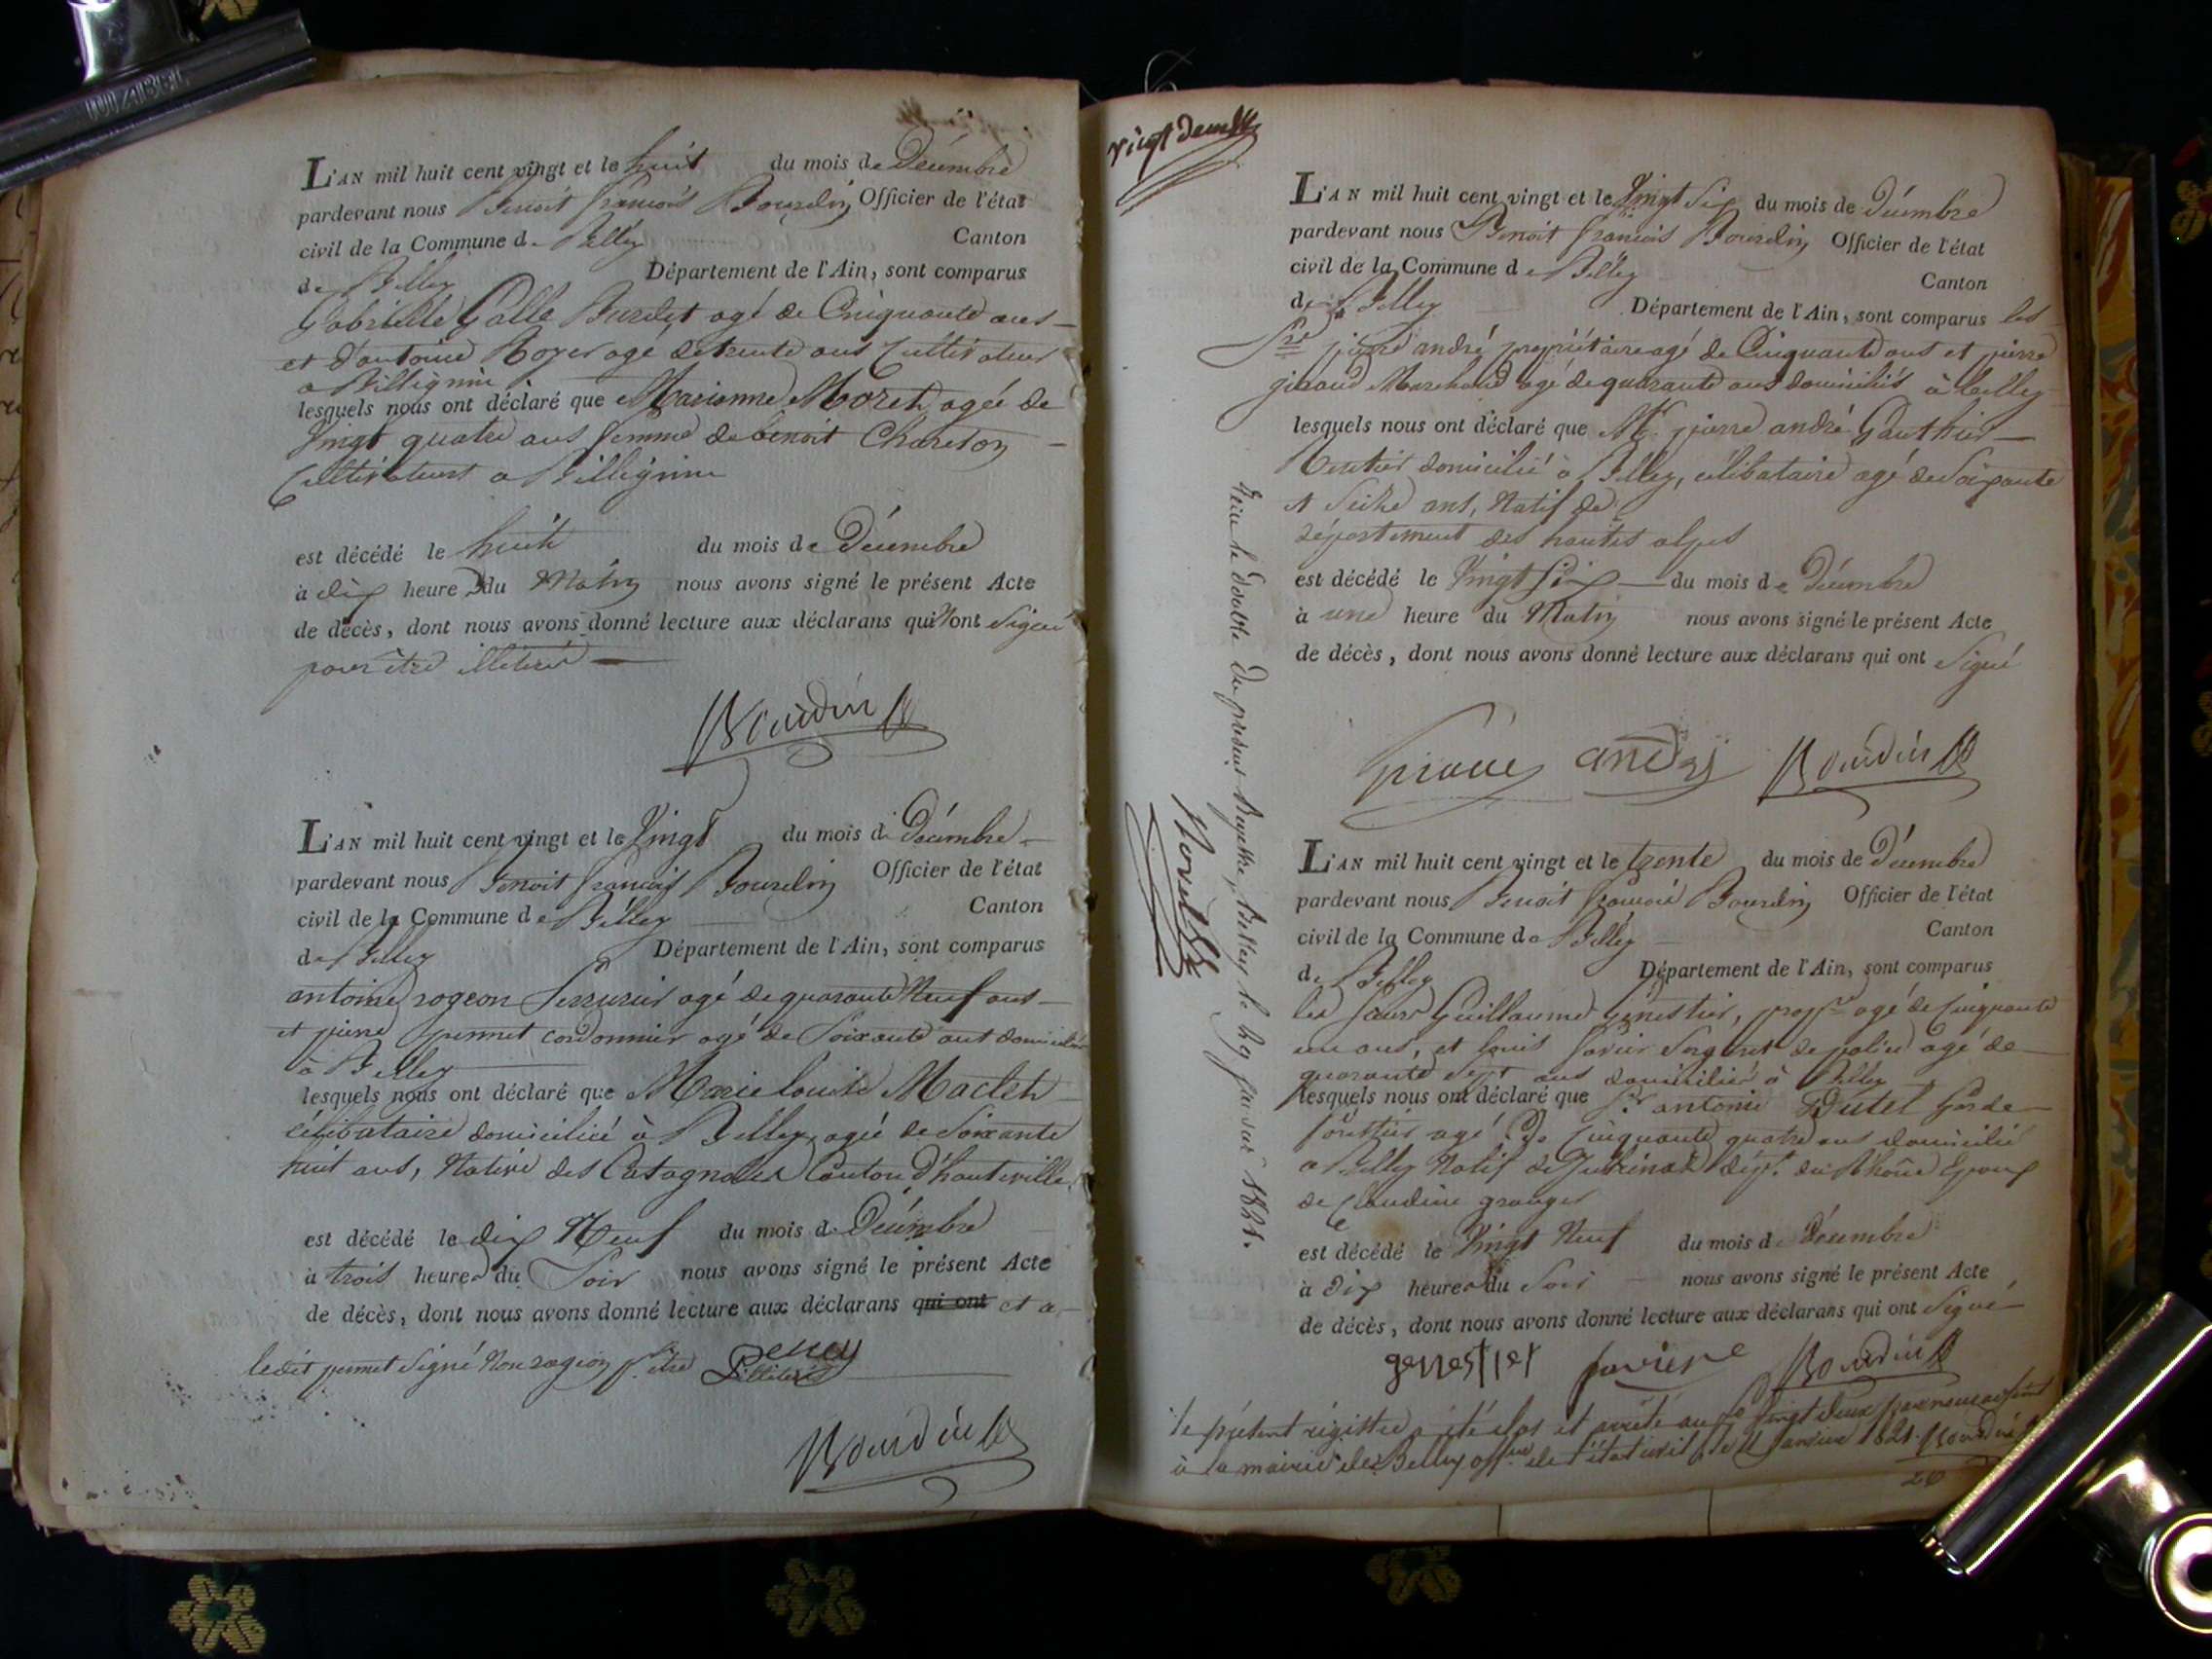 L'AN mil huit cent vingt et le huit du mois de Décembre
pardevant nous Benoit françois Bourdin Officier de l'état
civil de la Commune de Belley Canton
de Belley Département de l'Ain, sont comparus
Gabrielle Galle Burdet agé de Cinquante ans
et d'antoine Royer agé de trente ans Cultivateur
a Billignin
lesquels nous ont déclaré que Marianne Moret agée de
Vingt quatre ans femme de benoit Chareton
Cultivateur a Billignin
est décédé le huit du mois de Décembre
à dix heure du Matin nous avons signé le présent Acte
de décès, dont nous avons donné lecture aux déclarans qui n'ont Signé
pour être illétérés
Bourdin
L'AN mil huit cent vingt et le Vingt du mois de Décembre
pardevant nous Benoit françois Bourdin Officier de l'état
civil de la Commune de Belley Canton
de Belley Département de l'Ain, sont comparus
antoine rogeon Serrurier agé de quarante Neuf ans
et pierre pernet cordonnier agé de Soixante ans domiciliés
à Belley
lesquels nous ont déclaré que Marie louise Maclet
célibataire domiciliée à Belley, agée de Soixante
huit ans, Native des Catagnoles Canton d'hauteville
est décédé le dix Neuf du mois de Décembre
à trois heures du Soir nous avons signé le présent Acte
de décès, dont nous avons donné lecture aux déclarans qui ont et a
ledit pernet Signé Non rogeon pr. être illitéré
Bourdin
vingt deux
L'AN mil huit cent vingt et le Vingt Six du mois de Décembre
pardevant nous Benoit françois Bourdin Officier de l'état
civil de la Commune de Belley Canton
de Belley Département de l'Ain, sont comparus les
Srs pierre andré propriétaire agé de Cinquante ans et pierre
giraud Marchand agé de quarante ans domiciliés à belley
lesquels nous ont déclaré que Mr. pierre andré Gauthier
Rentier domicilié à Belley, célibataire agé de Soixante
et Seize ans, Natif de
département des hautes alpes
est décédé le Vingt Six du mois de Décembre
à une heure du Matin nous avons signé le présent Acte
de décès, dont nous avons donné lecture aux déclarans qui ont Signé
andré Bourdin
L'AN mil huit cent vingt et le trente du mois de Décembre
pardevant nous Benoit françois Bourdin Officier de l'état
civil de la Commune de Belley Canton
de Belley Département de l'Ain, sont comparus
les Sieurs Guillaume Genestier, propre agé de Cinquante
un ans, et louis favier Sergent de police agé de
quarante Sept ans domiciliés à Belley
lesquels nous ont déclaré que Sr. antoine Dutel Garde
forestier agé De Cinquante quatre ans domicilié
a Belley Natif de dépt. du Rhône Epoux
de Claudine granger
est décédé le Vingt Neuf du mois de Décembre
à Dix heures du Soir nous avons signé le présent Acte
de décès, dont nous avons donné lecture aux déclarans qui ont Signé
genestier faviere Bourdin
le présent registre a été clos et arrêté au fo Vingt deux par nous
à la mairie de Belley offer de l'état civil, le Janvier 1821. Bourdin
le double du présent Registre, Belley le 29 1821.